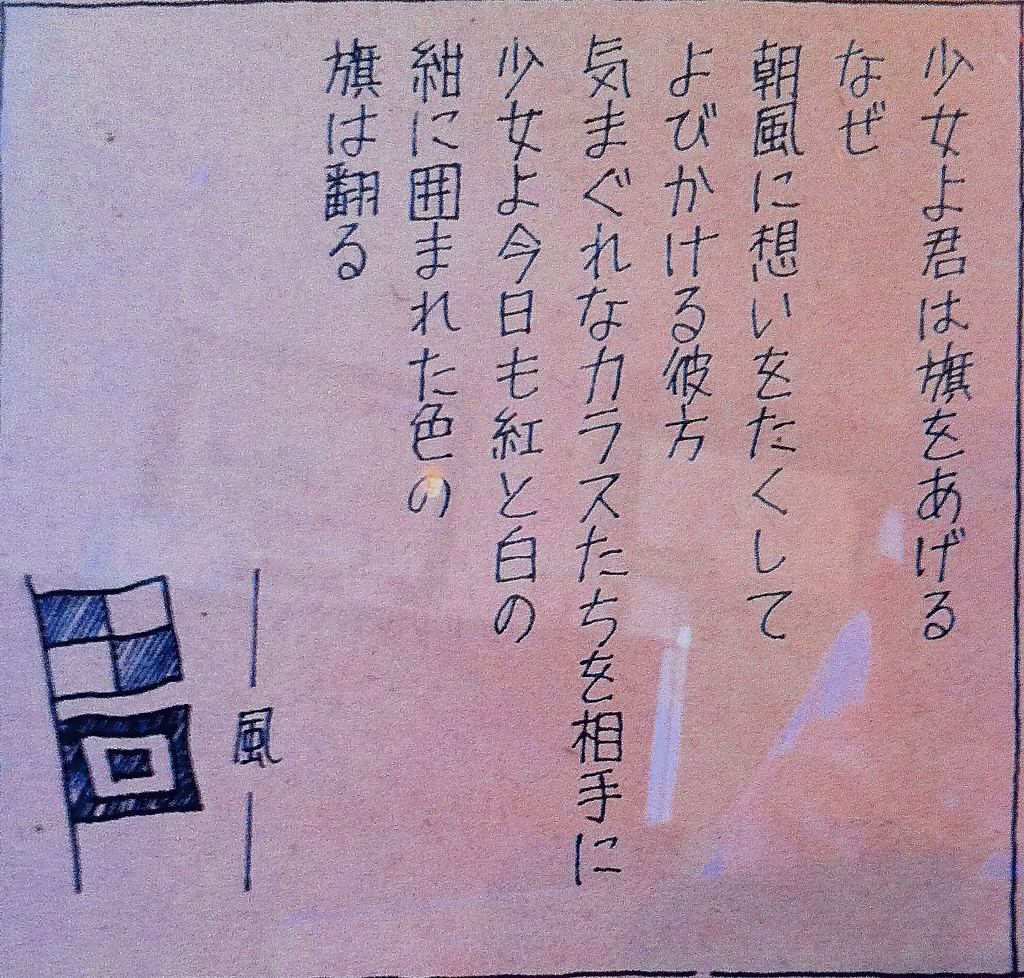 少女よ君は旗をあげる
なぜ
朝風に想いをたくして
よびかける彼方
気まぐれなカラスたちを相手に
少女よ今日も紅と白の
紺に囲まれた色の
旗は翻る
―風―